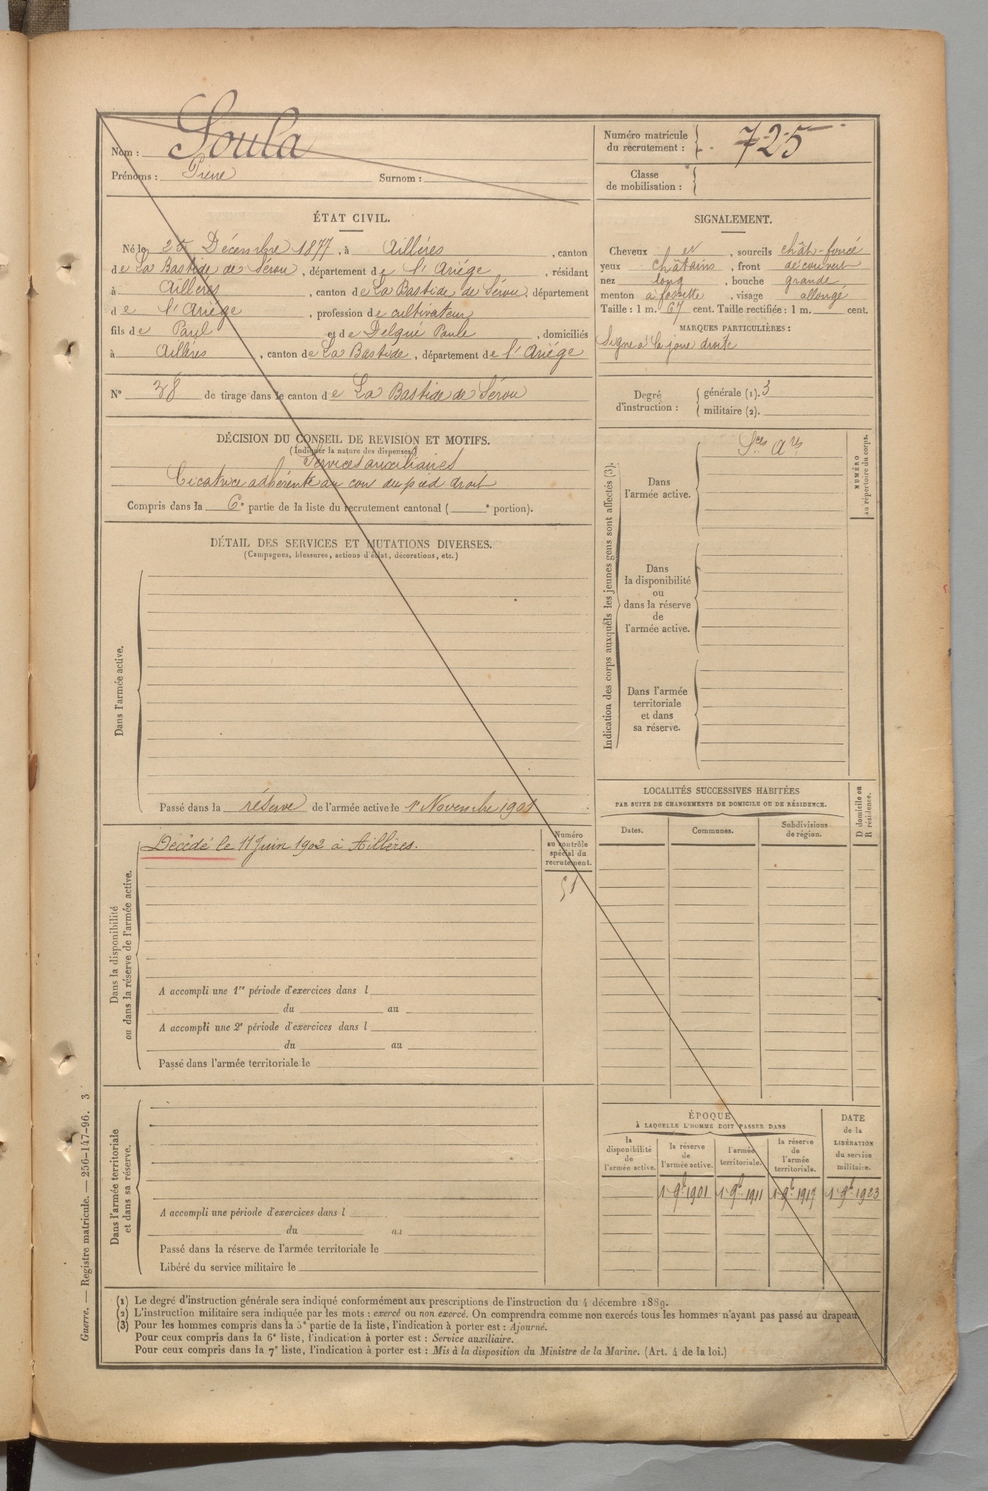 Nom : Soula
Prénoms : Pierre Surnom :
Numéro matricule du recrutement : 725
Classe de mobilisation :
ÉTAT CIVIL.
Né le Décembre 1877, à Aillères, canton
de La Bastide de Sérou, département de l'Ariége, résidant
à Aillères, canton de La Bastide de Sérou, département
de l'Ariége, profession de cultivateur
fils de Paul et de Delqué Paule, domiciliés
à Aillères, canton de La Bastide, département de l'Ariége
N° 38 de tirage dans le canton de La Bastide de Sérou
SIGNALEMENT.
Cheveux , sourcils chât-foncé
yeux châtains, front découvert
nez long, bouche grande
menton à fossette, visage allongé
Taille : 1 m. 67 cent. Taille rectifiée : 1 m. cent.
MARQUES PARTICULIÈRES :
Signe à la joue droite
Degré d'instruction : générale (1). 3
militaire (2).
DÉCISION DU CONSEIL DE REVISION ET MOTIFS.
(Indiquer la nature des dispenses)
Services auxiliaires
Cicatrice adhérente au cou du pied droit
Compris dans la 6e partie de la liste du recrutement cantonal ( e portion).
Indication des corps auxquels les jeunes gens sont affectés (3).
Dans l'armée active.
Sces Ares
NUMÉRO au répertoire du corps.
Dans la disponibilité ou dans la réserve de l'armée active.
Dans l'armée territoriale et dans sa réserve.
DÉTAIL DES SERVICES ET MUTATIONS DIVERSES.
(Campagnes, blessures, actions d'éclat, décorations, etc.)
Dans l'armée active.
Passé dans la réserve de l'armée active le 1er Novembre 1901
Dans la disponibilité ou dans la réserve de l'armée active.
Décédé le 11 Juin 1902 à Aillères.
Numéro au contrôle spécial du recrutement.
51
A accompli une 1re période d'exercices dans l
du au
A accompli une 2e période d'exercices dans l
du au
Passé dans l'armée territoriale le
LOCALITÉS SUCCESSIVES HABITÉES
PAR SUITE DE CHANGEMENTS DE DOMICILE OU DE RÉSIDENCE.
Dates. Communes. Subdivisions de région.
D domicile ou R résidence.
Dans l'armée territoriale et dans sa réserve.
A accompli une période d'exercices dans l
du au
Passé dans la réserve de l'armée territoriale le
Libéré du service militaire le
ÉPOQUE
À LAQUELLE L'HOMME DOIT PASSER DANS
la disponibilité de l'armée active.
la réserve de l'armée active.
l'armée territoriale.
la réserve de l'armée territoriale.
DATE de la LIBÉRATION du service militaire.
1er 9bre 1901 1er 9bre 1911 1er 9bre 1917 1er 9bre 1923
(1) Le degré d'instruction générale sera indiqué conformément aux prescriptions de l'instruction du 4 décembre 1889.
(2) L'instruction militaire sera indiquée par les mots : exercé ou non exercé. On comprendra comme non exercés tous les hommes n'ayant pas passé au drapeau.
(3) Pour les hommes compris dans la 5e partie de la liste, l'indication à porter est : Ajourné.
Pour ceux compris dans la 6e liste, l'indication à porter est : Service auxiliaire.
Pour ceux compris dans la 7e liste, l'indication à porter est : Mis à la disposition du Ministre de la Marine. (Art. 4 de la loi.)
Guerre. — Registre matricule. — 256-147-96. 3